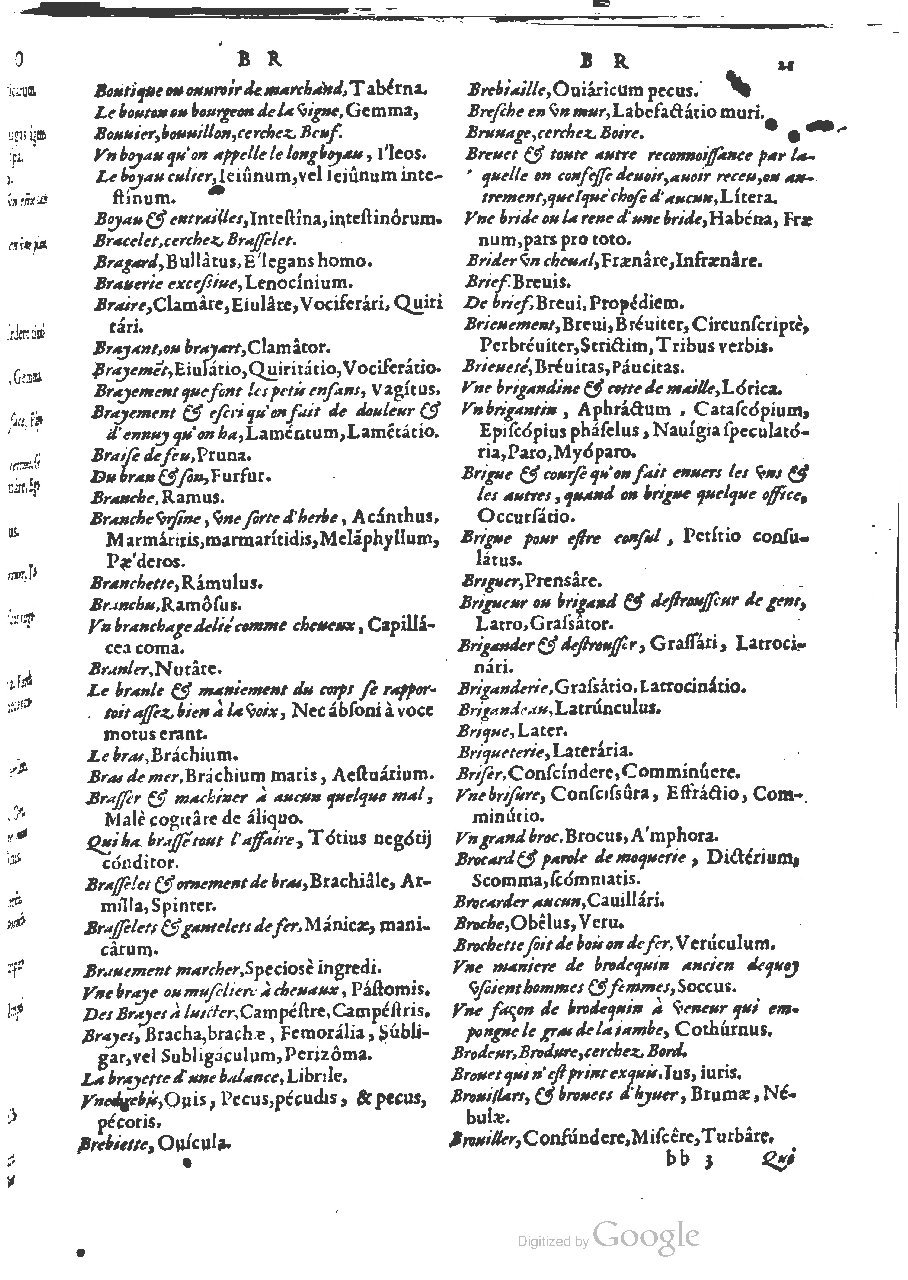 B R
Boutique ou ouuroir de marchãd, Tabérna.
Le bouton ou bourgeon de la vigne, Gemma,
Bouuier, bouuillon, cerchez Beuf.
Vn boyau qu'on appelle le long boyau, I'leos.
Le boyau culier, Ieiûnum, vel Ieiûnum inte-
ſtínum.
Boyau & entrailles, Inteſtína, inteſtinôrum.
Bracelet, cerchez Braſſelet.
Bragard, Bullâtus, E'legans homo.
Brauerie exceſsiue, Lenocínium.
Braire, Clamâre, Eiulâre, Vociferári, Quiri
tári.
Brayant, ou brayart, Clamâtor.
Brayemẽt, Eiulátio, Quiritátio, Vociferátio.
Brayement que font les petis enfans, Vagítus.
Brayement & eſcri qu'on fait de douleur &
d'ennuy qu'on ha, Laméntum, Lamẽtátio.
Braiſe de feu, Pruna.
Du bran & ſon, Furfur.
Branche, Ramus.
Branche vrſine, vne ſorte d'herbe, Acánthus,
Marmáritis, marmarítidis, Meláphyllum,
Pæ'deros.
Branchette, Rámulus.
Branchu, Ramôſus.
Vn branchage delié comme cheueux, Capillá-
cea coma.
Branler, Nutâre.
Le branle & maniement du corps ſe rappor-
toit aſſez bien à la voix, Nec ábſoni à voce
motus erant.
Le bras, Bráchium.
Bras de mer, Bráchium maris, Aeſtuárium.
Braſſer & machiner à aucun quelque mal,
Malè cogitâre de áliquo.
Qui ha braſſé tout l'affaire, Tótius negótij
cónditor.
Braſſelet & ornement de bras, Brachiâle, Ar-
mílla, Spinter.
Braſſelets & gantelets de fer, Mánicæ, mani-
cârum.
Brauement marcher, Speciosè ingredi.
Vne braye ou muſeliere à cheuaux, Páſtomis.
Des Brayes à luicter, Campéſtre, Campéſtris.
Brayes, Bracha, brachæ, Femorália, Súbli-
gar, vel Subligáculum, Perizôma.
La brayette d'une balance, Librile.
Vne brebis, Ouis, Pecus, pécudis, & pecus,
pécoris.
Brebiette, Ouícula.
B R
Brebiaille, Ouiáricum pecus.
Breſche en vn mur, Labefactátio muri.
Bruuage, cerchez Boire.
Breuet & toute autre reconnoiſſance par la-
quelle on confeſſe deuoir, auoir receu, ou au-
trement, quelque choſe d'aucun, Lítera.
Vne bride ou la rene d'une bride, Habéna, Fræ
num, pars pro toto.
Brider vn cheual, Frænâre, Infrænâre.
Brief. Breuis.
De brief, Breui, Propédiem.
Brieuement, Breui, Bréuiter, Circunſcriptè,
Perbréuiter, Strictim, Tribus verbis.
Brieueté, Bréuitas, Páucitas.
Vne brigandine & cotte de maille, Lórica.
Vn brigantin, Aphráctum, Cataſcópium,
Epiſcópius pháſelus, Nauígia ſpeculató-
ria, Paro, Myóparo.
Brigue & courſe qu'on fait enuers les vns &
les autres, quand on brigue quelque office,
Occurſátio.
Brigue pour eſtre conſul, Petítio conſu-
látus.
Briguer, Prensâre.
Brigueur ou brigand & deſtrouſſeur de gent,
Latro, Graſsâtor.
Brigander & deſtrouſſer, Graſſári, Latroci-
nári.
Briganderie, Graſsátio. Latrocinátio.
Brigandeau, Latrúnculus.
Brique, Later.
Briqueterie, Laterária.
Briſer, Conſcíndere, Comminúere.
Vne briſure, Conſciſsûra, Effráctio, Com-
minútio.
Vn grand broc. Brocus, A'mphora.
Brocard & parole de moquerie, Dictérium,
Scomma, ſcómmatis.
Brocarder aucun, Cauillári.
Broche, Obêlus, Veru.
Brochette ſoit de bois ou de fer, Verúculum.
Vne maniere de brodequin ancien dequoy
vſoient hommes & femmes, Soccus.
Vne façon de brodequin à veneur qui em-
pongne le gras de la iambe, Cothúrnus.
Brodeur, Brodure, cerchez Bord.
Brouet qui n'eſt point exquis, Ius, iuris.
Brouillars, & brouees d'hyuer, Brumæ, Né-
bulæ.
Brouiller, Confúndere, Miſcêre, Turbâre.
bb 3 Qui
Digitized by Google